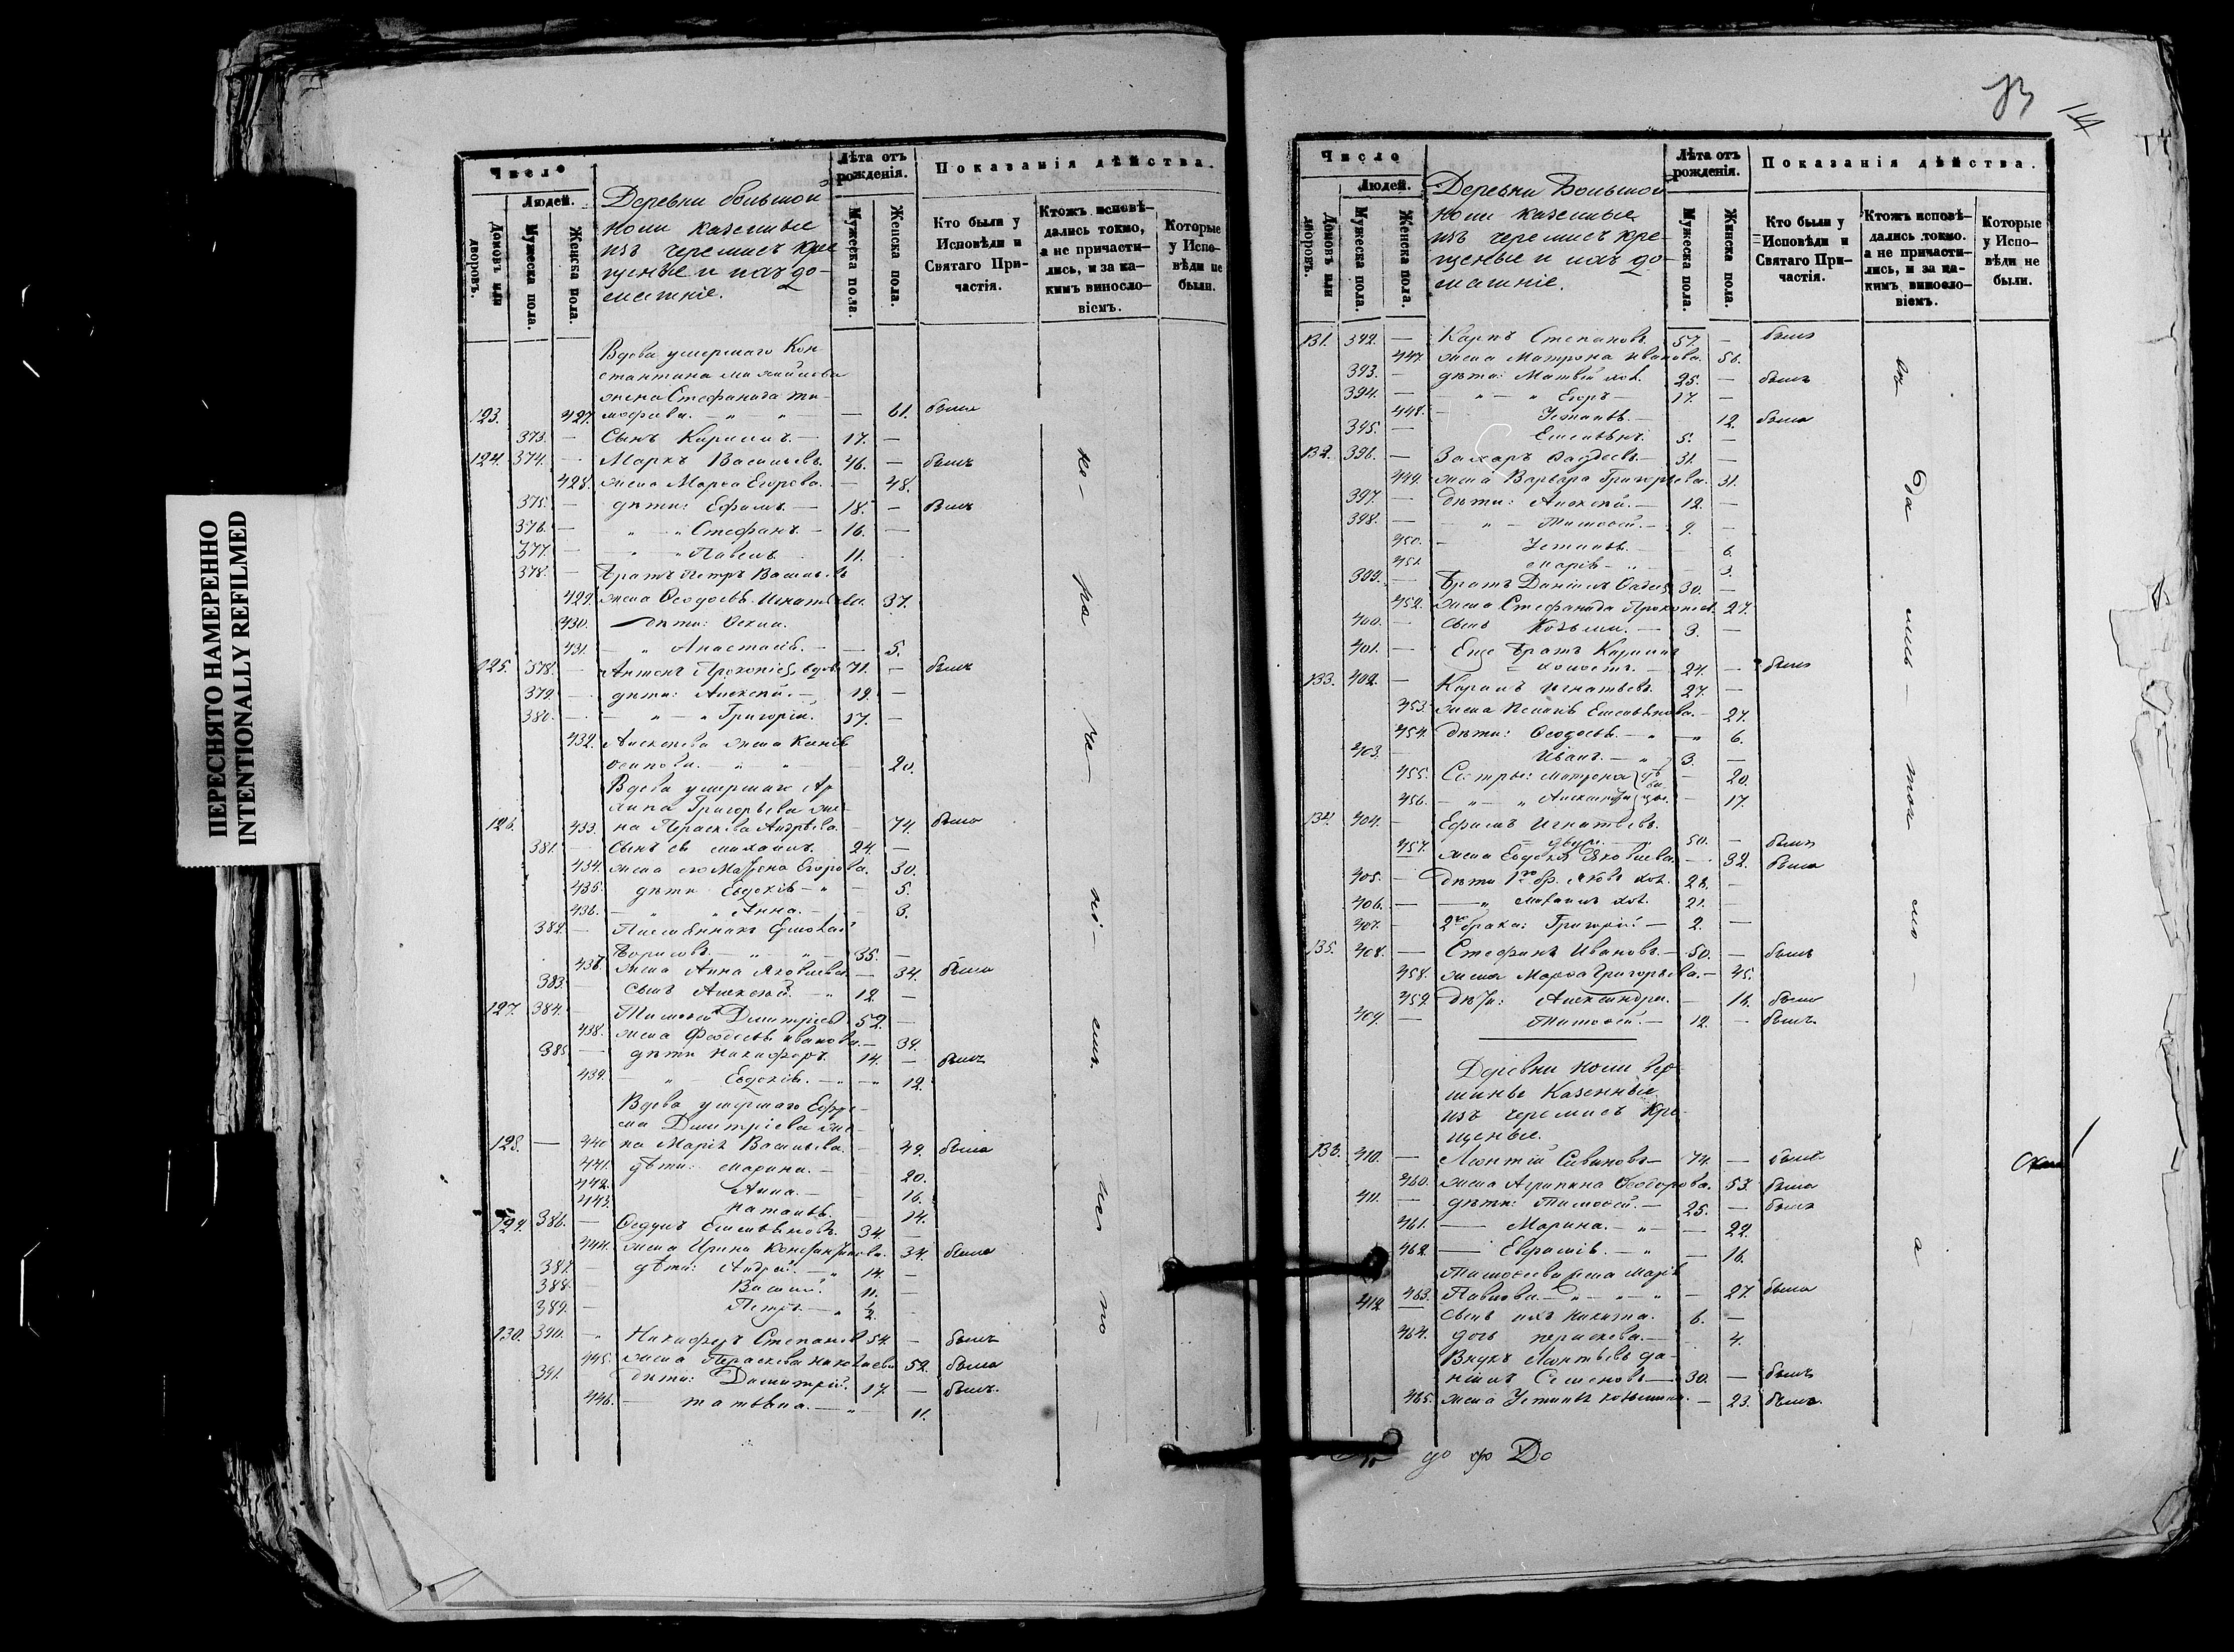 ПЕРЕСНЯТО НАМЕРЕННО
INTENTIONALLY REFILMED
Число
Людей.
Домовъ или дворовъ.
Мужеска пола.
Женска пола.
Деревни большой
Ноли казенные
изъ черемисъ кре
щеные и ихъ до-
машніе.
Лѣта отъ рожденія.
Мужеска пола.
Женска пола.
Показанія дѣйства.
Кто были у Исповѣди и Святаго При-частія.
Ктожъ исповѣ-дались токмо, а не причасти-лись, и за ка-кимъ виносло-віемъ.
Которые у Испо-вѣди не были.
Вдова умершаго Кон
стантина Михайлова
жена Стефанида Ти-
123. 427. мофеева. — " " — 61. была
373. — Сынъ Кириллъ. — 17. —
124. 374. — Маркъ Васильевъ. 46. — былъ
428. жена Марѳа Егорова. — 48.
375. — дѣти: Ефимъ. — 18. — былъ
376. — " — " Стефанъ. — 16. —
377. — " " Павелъ 11. —
378. — Братъ Петръ Васильевъ
429. жена Ѳеодосья Игнатьева. 37.
430. — дѣти:
431. — " Анастасія. — — 5.
125. 378. — Антонъ Прокопіевъ, вдовъ 71. — былъ
379. — дѣти: Алексѣй. — 19. —
380. — — " — " Григорій. 17. —
432. Алексѣева жена
Осипова. — " — " — 20.
Вдова умершаго Ар
хипа Григорьева же-
126. 433. на Параскева Андрѣева. — 74. была
381. — Сынъ ея Михаилъ. 24. —
434. жена его Матрена Егорова. 30.
435. дѣти Евдокія — " — 5.
436. — " " Анна. — — 3.
382. — Племянникъ Ермолай
Борисовъ. — " — " — 35. —
437. жена Анна Яковлева — 34. была
383. — сынъ Алексѣй. — " 12. —
127. 384. — Тимоѳей Дмитріевъ 52. —
438. жена Ѳедосья Иванова. — 34.
385. — дѣти Никифоръ. 14. — былъ
439. — " — Евдокія. — " — " 12.
Вдова умершаго Ефре-
ма Дмитріева же-
128. — 440. на Марія Васильева. — 49. была
441. дѣти: Марина. — — 20.
442. Анна. — — 16.
443. Наталья. — 14.
129. 386. — Ѳедулъ Емельяновъ. 34. —
444. жена Ирина Константинова. 34. была
387. — дѣти: Андрей. — " 14. —
388. — Василій. 11. —
389. — Петръ. — " 1/2. —
130. 390. — Никифоръ Степановъ 54. — былъ
445. жена Параскева Николаева 52. была
391. дѣти: Димитрій. 17. — былъ.
446. — Татьяна. — " — 11.
73
14
Число
Людей.
Домовъ или дворовъ.
Мужеска пола.
Женска пола.
Деревни Большой
Ноли казенные
изъ черемисъ кре-
щеные и ихъ до-
машніе.
Лѣта отъ рожденія.
Мужеска пола.
Женска пола.
Показанія дѣйства.
Кто были у Исповѣди и Святаго При-частія.
Ктожъ исповѣ-дались токмо. а не причасти-лись, и за ка-кимъ виносло-віемъ.
Которые у Испо-вѣди не были.
131. 392. — Карпъ Степановъ. 57. — былъ
447. жена Матрона Иванова. 56.
393. — дѣти: Матвѣй хол. 25. — былъ
394. — — " — " Егоръ — 17. —
448. — Устинья. — 12. была
395. — Емельянъ. 5. —
132. 396. — Захаръ Ѳадѣевъ — 31. —
449. жена Варвара Григорьева. 31.
397. — дѣти: Алексѣй. — 12. —
398. — — " — Тимоѳей. — 9. —
450. — Устинья. — 6.
451. Марія — " — 3.
399. — Братъ Даніилъ Ѳадѣевъ 30. —
452. жена Стефанида Прокопьева. 27.
400. — сынъ Козьма. — 3. —
401. — Еще братъ Кириллъ
холостъ. — 24. — былъ
133. 402. — Кириллъ Игнатьевъ. 27. —
453. жена Пелагія Емельянова. — 27.
454. дѣти: Ѳеодосья. — " " 6.
403. — Иванъ. — " 3. —
455. Сестры: Матрона — 20.
456. — " — " Александра — 17.
134. 404. — Ефимъ Игнатьевъ.
50. — былъ
457. жена Евдокія Яковлева. — 32. была
405. — дѣти 1го бр. Яковъ хол. 23. —
406. — — " Михаилъ хол. 21. —
407. — 2го брака: Григорій — 2. —
135. 408. — Стефанъ Ивановъ. — 50. — былъ
458. жена Марѳа Григорьева. — 45.
459. дѣти: Александра. — 16. была
409. — Тимоѳей. — 12. — былъ.
Деревни Ноли Вер
шины Казенные
изъ черемисъ Кре-
щеные.
136. 410. — Леонтій Сивановъ — 74. — былъ
460. жена Агрипина Ѳеодорова. 53. была
411. — дѣти: Тимоѳей. — 25. — былъ
461. — Марина. — " — 22.
462. — Евфимія. — " — 16.
Тимоѳеева жена Марія
463. Павлова. — " — " — " — 27. была
412. — сынъ ихъ Никита. 6. —
464. дочь Параскева. — 4.
Внукъ Леонтьевъ Да-
ніилъ Семеновъ — 30. — былъ
465. жена Устинья Козьмина. — 23. была.